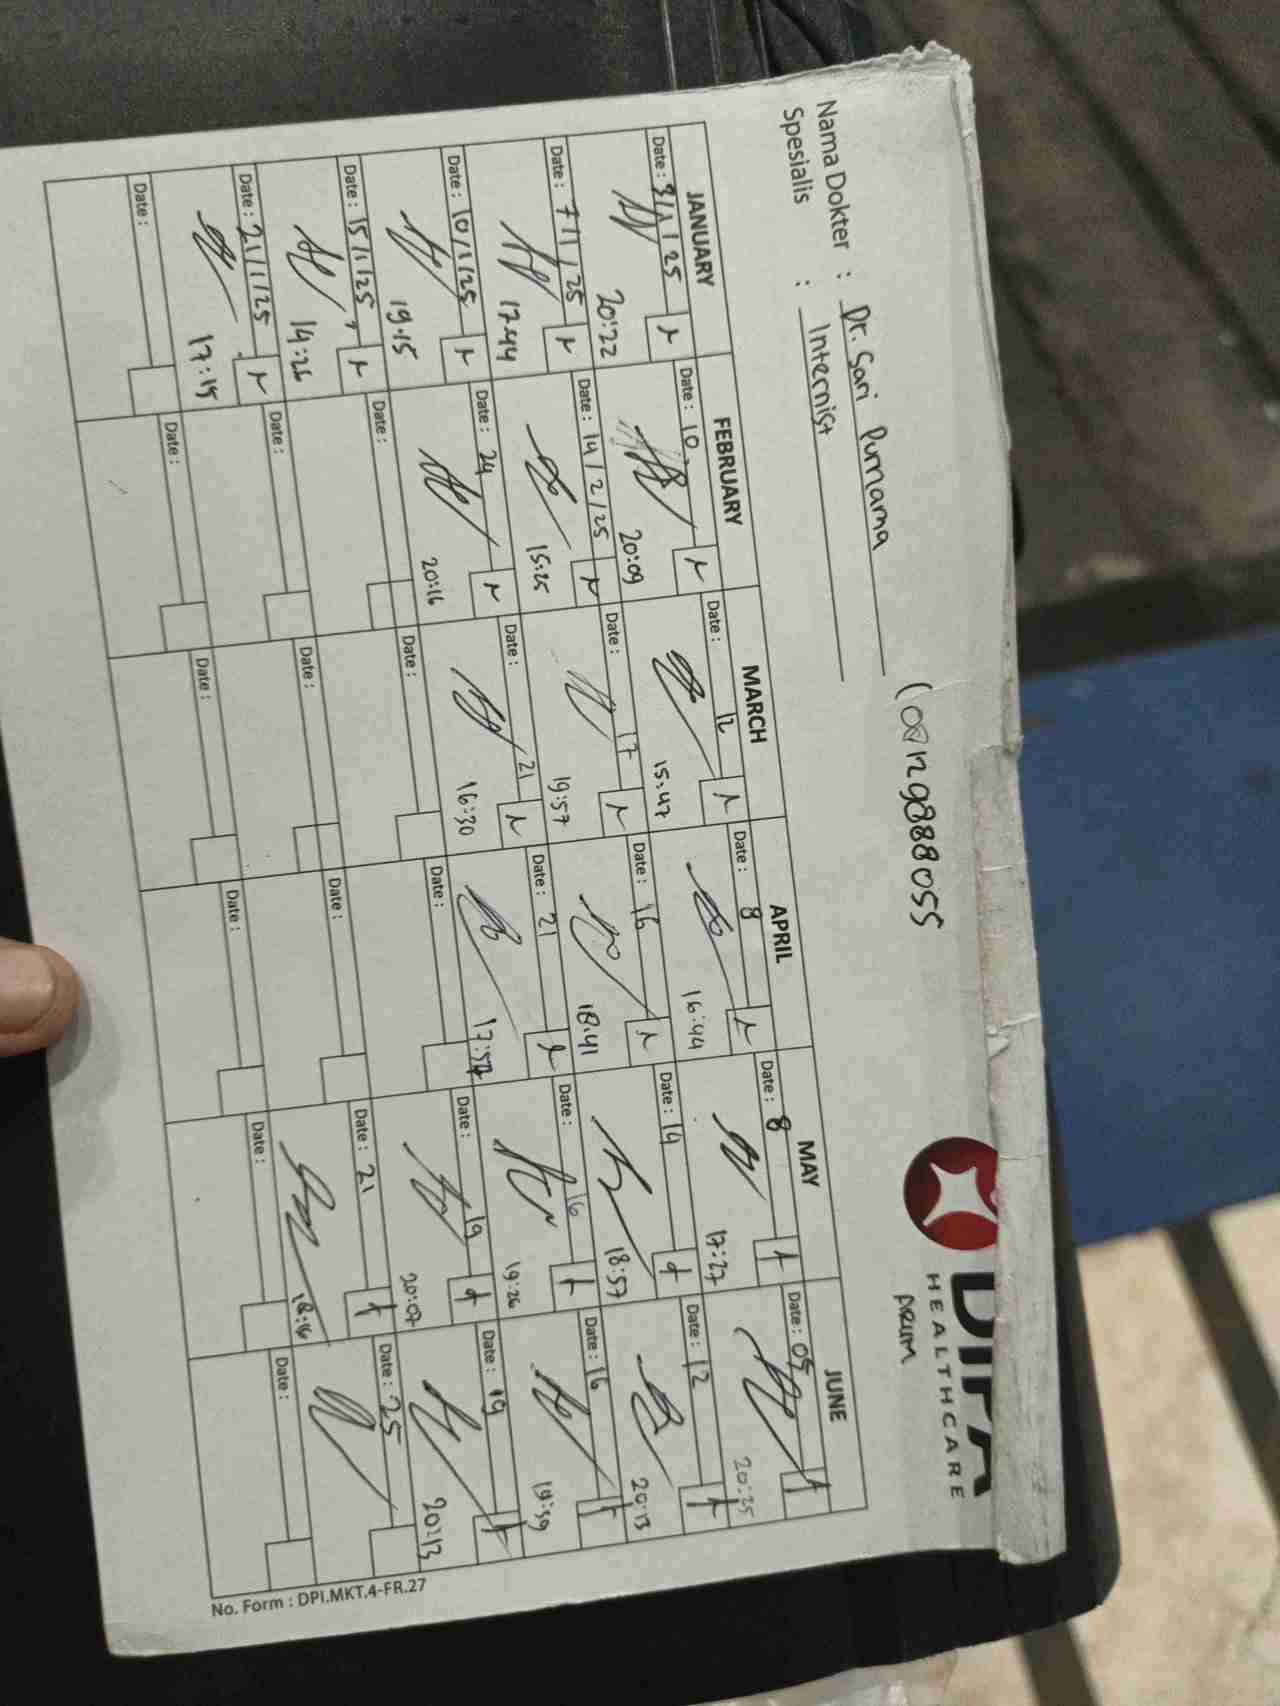 (081298888055
DIPA
HEALTHCARE
ARUM
Nama Dokter : Dr. Sari Purnama
Spesialis : Internist
JANUARY FEBRUARY MARCH APRIL MAY JUNE
Date: 3/1/25 Date: 10 Date: 12 Date: 8 Date: 8 Date: 05
20:22 20:09 15:47 16:44 17:27 20:25
Date: 7/1/25 Date: 14/2/25 Date: 17 Date: 16 Date: 14 Date: 12
17:44 15:25 19:57 18:41 18:57 20:13
Date: 10/1/25 Date: 24 Date: 21 Date: 21 Date: 16 Date: 16
19.15 20:16 16:30 19:26 19:59
Date: 15/1/25 Date: Date: Date: Date: 19 Date: 19
14:26 20:07 20:13
Date: 21/1/25 Date: Date: Date: Date: 21 Date: 25
17:15 18:16
Date: Date: Date: Date: Date: Date:
No. Form : DPI.MKT.4-FR.27